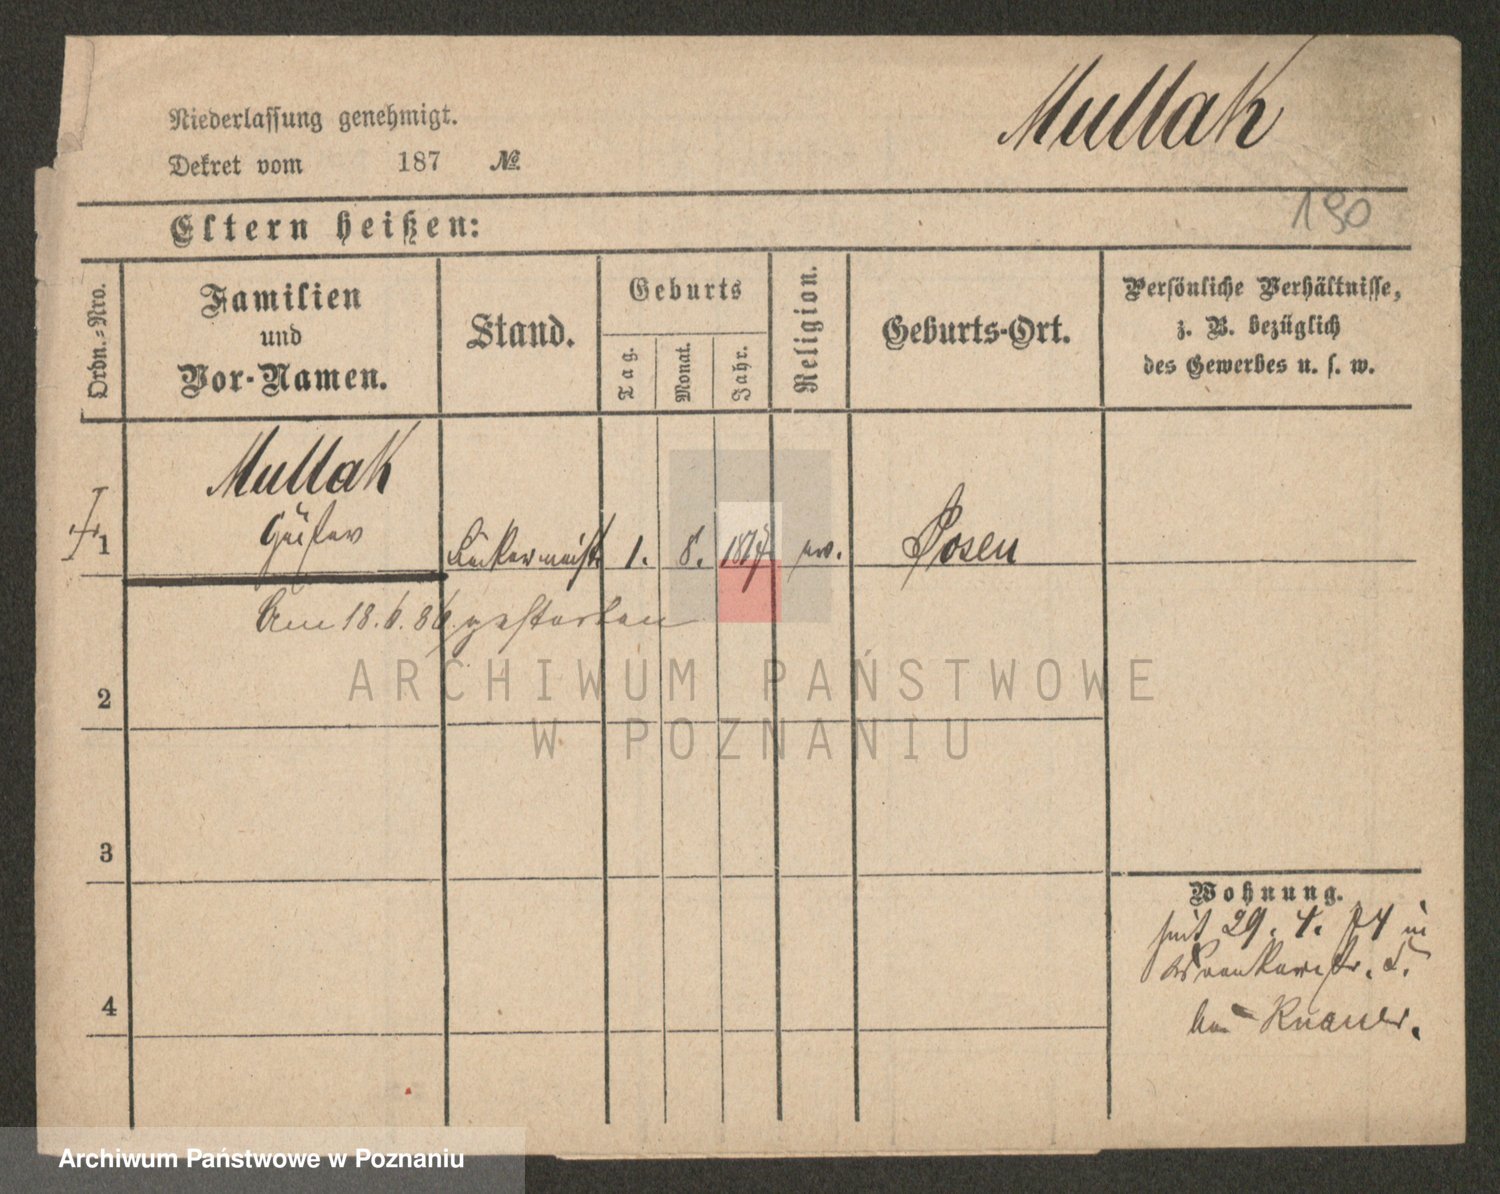 Mullak
Niederlassung genehmigt.
Dekret vom 187 №
190
Eltern heißen:
Ordn.-Nro.
Familien
und
Vor-Namen.
Stand.
Geburts
Tag.
Monat.
Jahr.
Religion.
Geburts-Ort.
Persönliche Verhältnisse,
z. B. bezüglich
des Gewerbes u. s. w.
Mullak
Gustav
1 1. 8. 1817 ev. Posen
Am 18.6.86 gestorben
2
3
4
Wohnung.
seit 29. 4. 74 in
bei Knauer.
ARCHIWUM PAŃSTWOWE
W POZNANIU
Archiwum Państwowe w Poznaniu